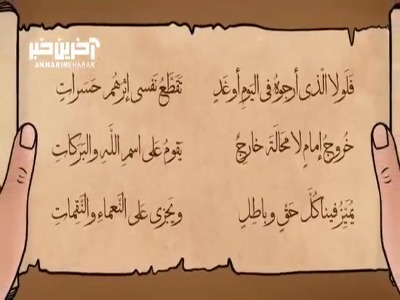 آخرین خبر
AKHARINKHABAR
فَلَولا الَّذى أرجوهُ فى اليَومِ أوغَدٍ تَقَطَّعُ نَفسى إثرَهُم حَسَراتِ
خُروجُ إمامٍ لا مَحالَةَ خارِجٌ يَقومُ عَلى اسمِ اللَّهِ والبَرَكاتِ
يُمَيِّزُ فينا كُلَّ حَقٍّ وباطِلٍ ويَجزى عَلى النَّعماءِ والنَّقِماتِ